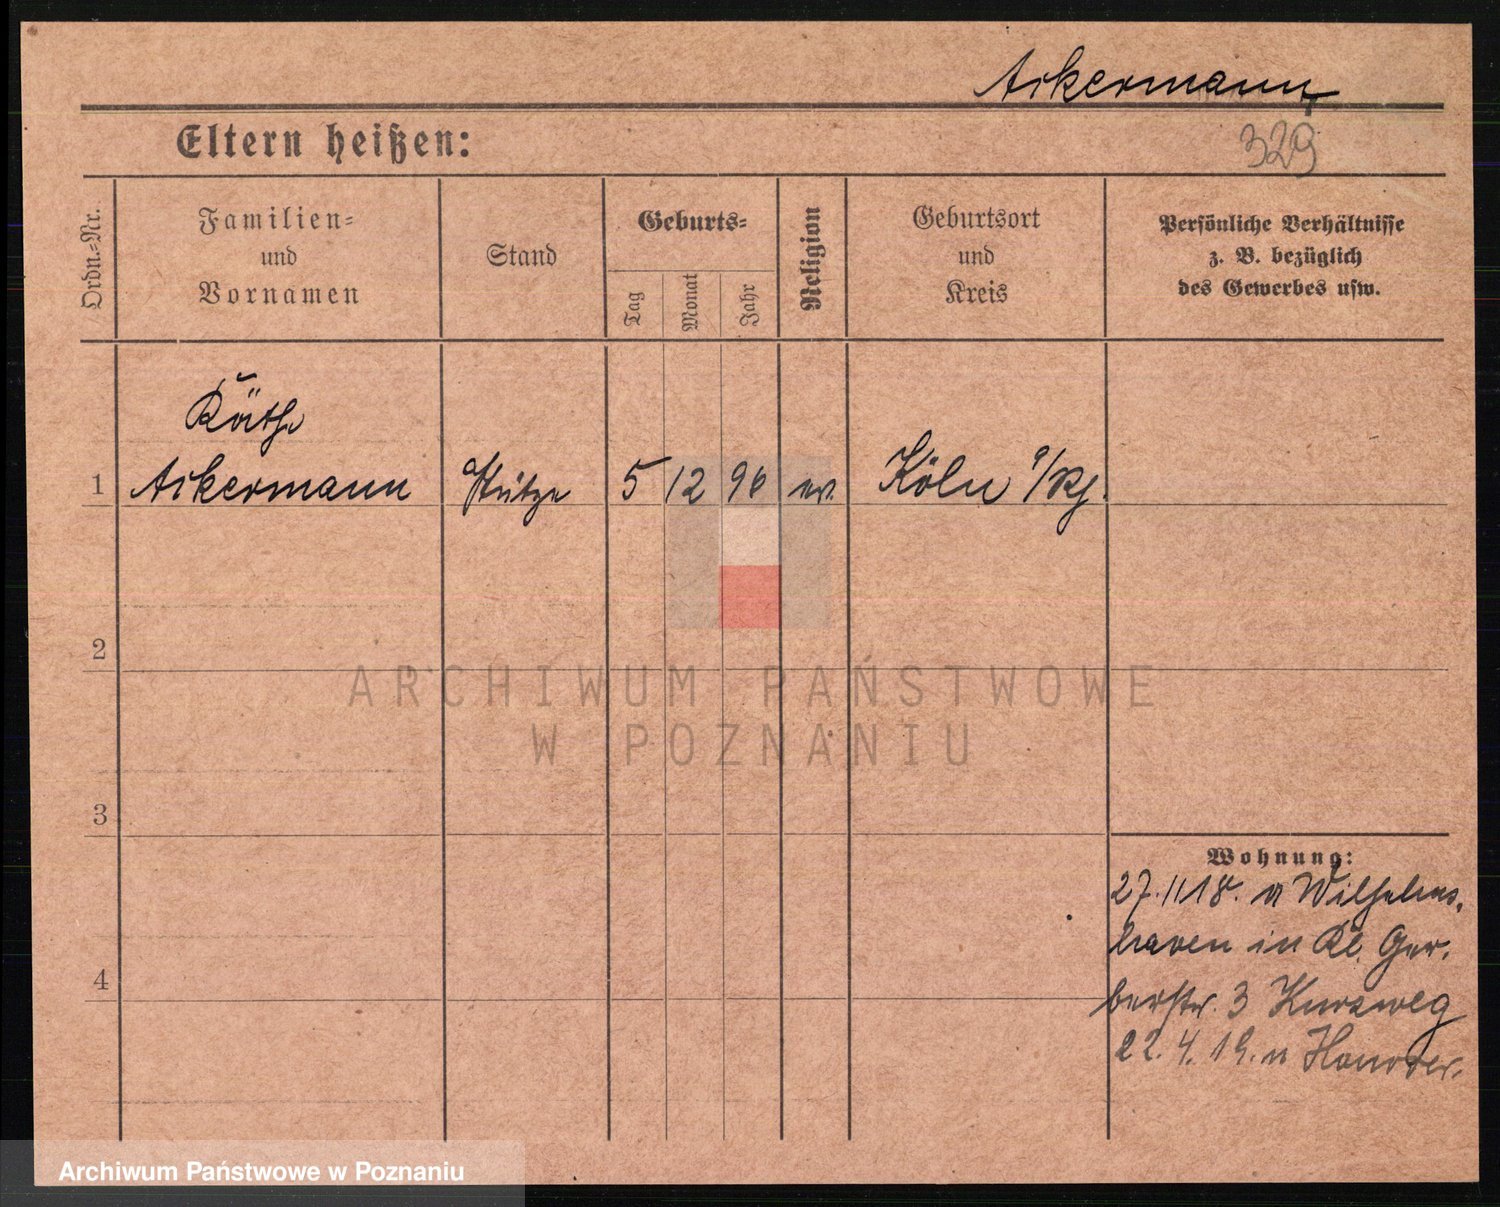 Ackermann
Eltern heißen:
329
Ordn.-Nr.
Familien-
und
Vornamen
Stand
Geburts-
Tag
Monat
Jahr
Religion
Geburtsort
und
Kreis
Persönliche Verhältnisse
z. B. bezüglich
des Gewerbes usw.
Käthe
1 Ackermann Stütze 5 12 96 ev. Köln a/Rh.
2
ARCHIWUM PAŃSTWOWE
W POZNANIU
3
Wohnung:
27. 11 18. v Wilhelms-
haven in Kl. Ger-
4
berstr. 3 Kurzweg
22. 4. 19. n Hannover.
Archiwum Państwowe w Poznaniu